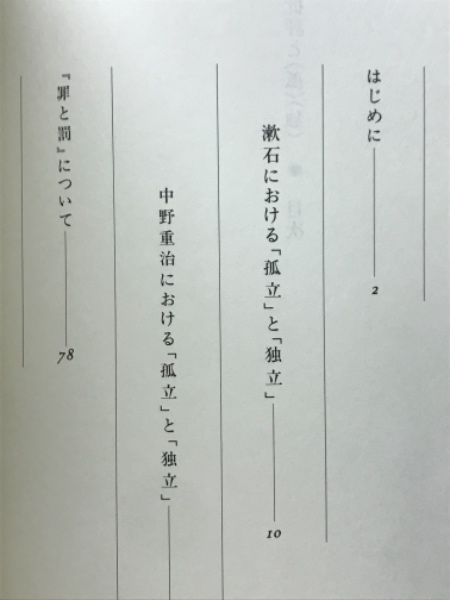 はじめに 2
漱石における「孤立」と「独立」 10
中野重治における「孤立」と「独立」
『罪と罰』について 78